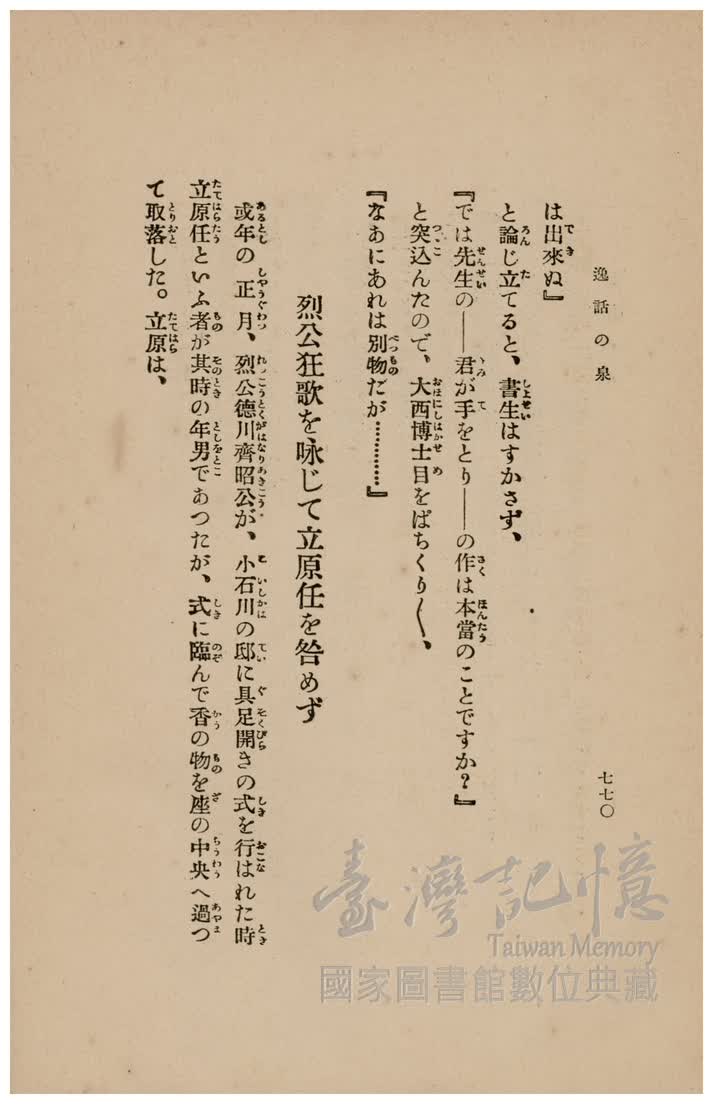 逸話の泉
七七〇
は出來ぬ』
と論じ立てると、書生はすかさず、
『では先生の――君が手をとり――の作は本當のことですか？』
と突込んだので、大西博士目をぱちくり〱、
『なあにあれは別物だが…………』
烈公狂歌を咏じて立原任を咎めず
或年の正月、烈公德川齊昭公が、小石川の邸に具足開きの式を行はれた時
立原任といふ者が其時の年男であつたが、式に臨んで香の物を座の中央へ過つ
て取落した。立原は、
臺灣記憶
Taiwan Memory
國家圖書館數位典藏